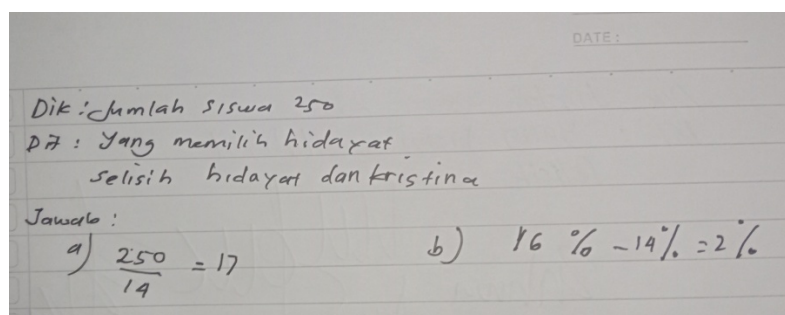 DATE :
Dik : Jumlah siswa 250
Dit : Yang memilih hidayat
selisih hidayat dan kristina
Jawab :
a) 250/14 = 17
b) 16 % - 14 % = 2 %